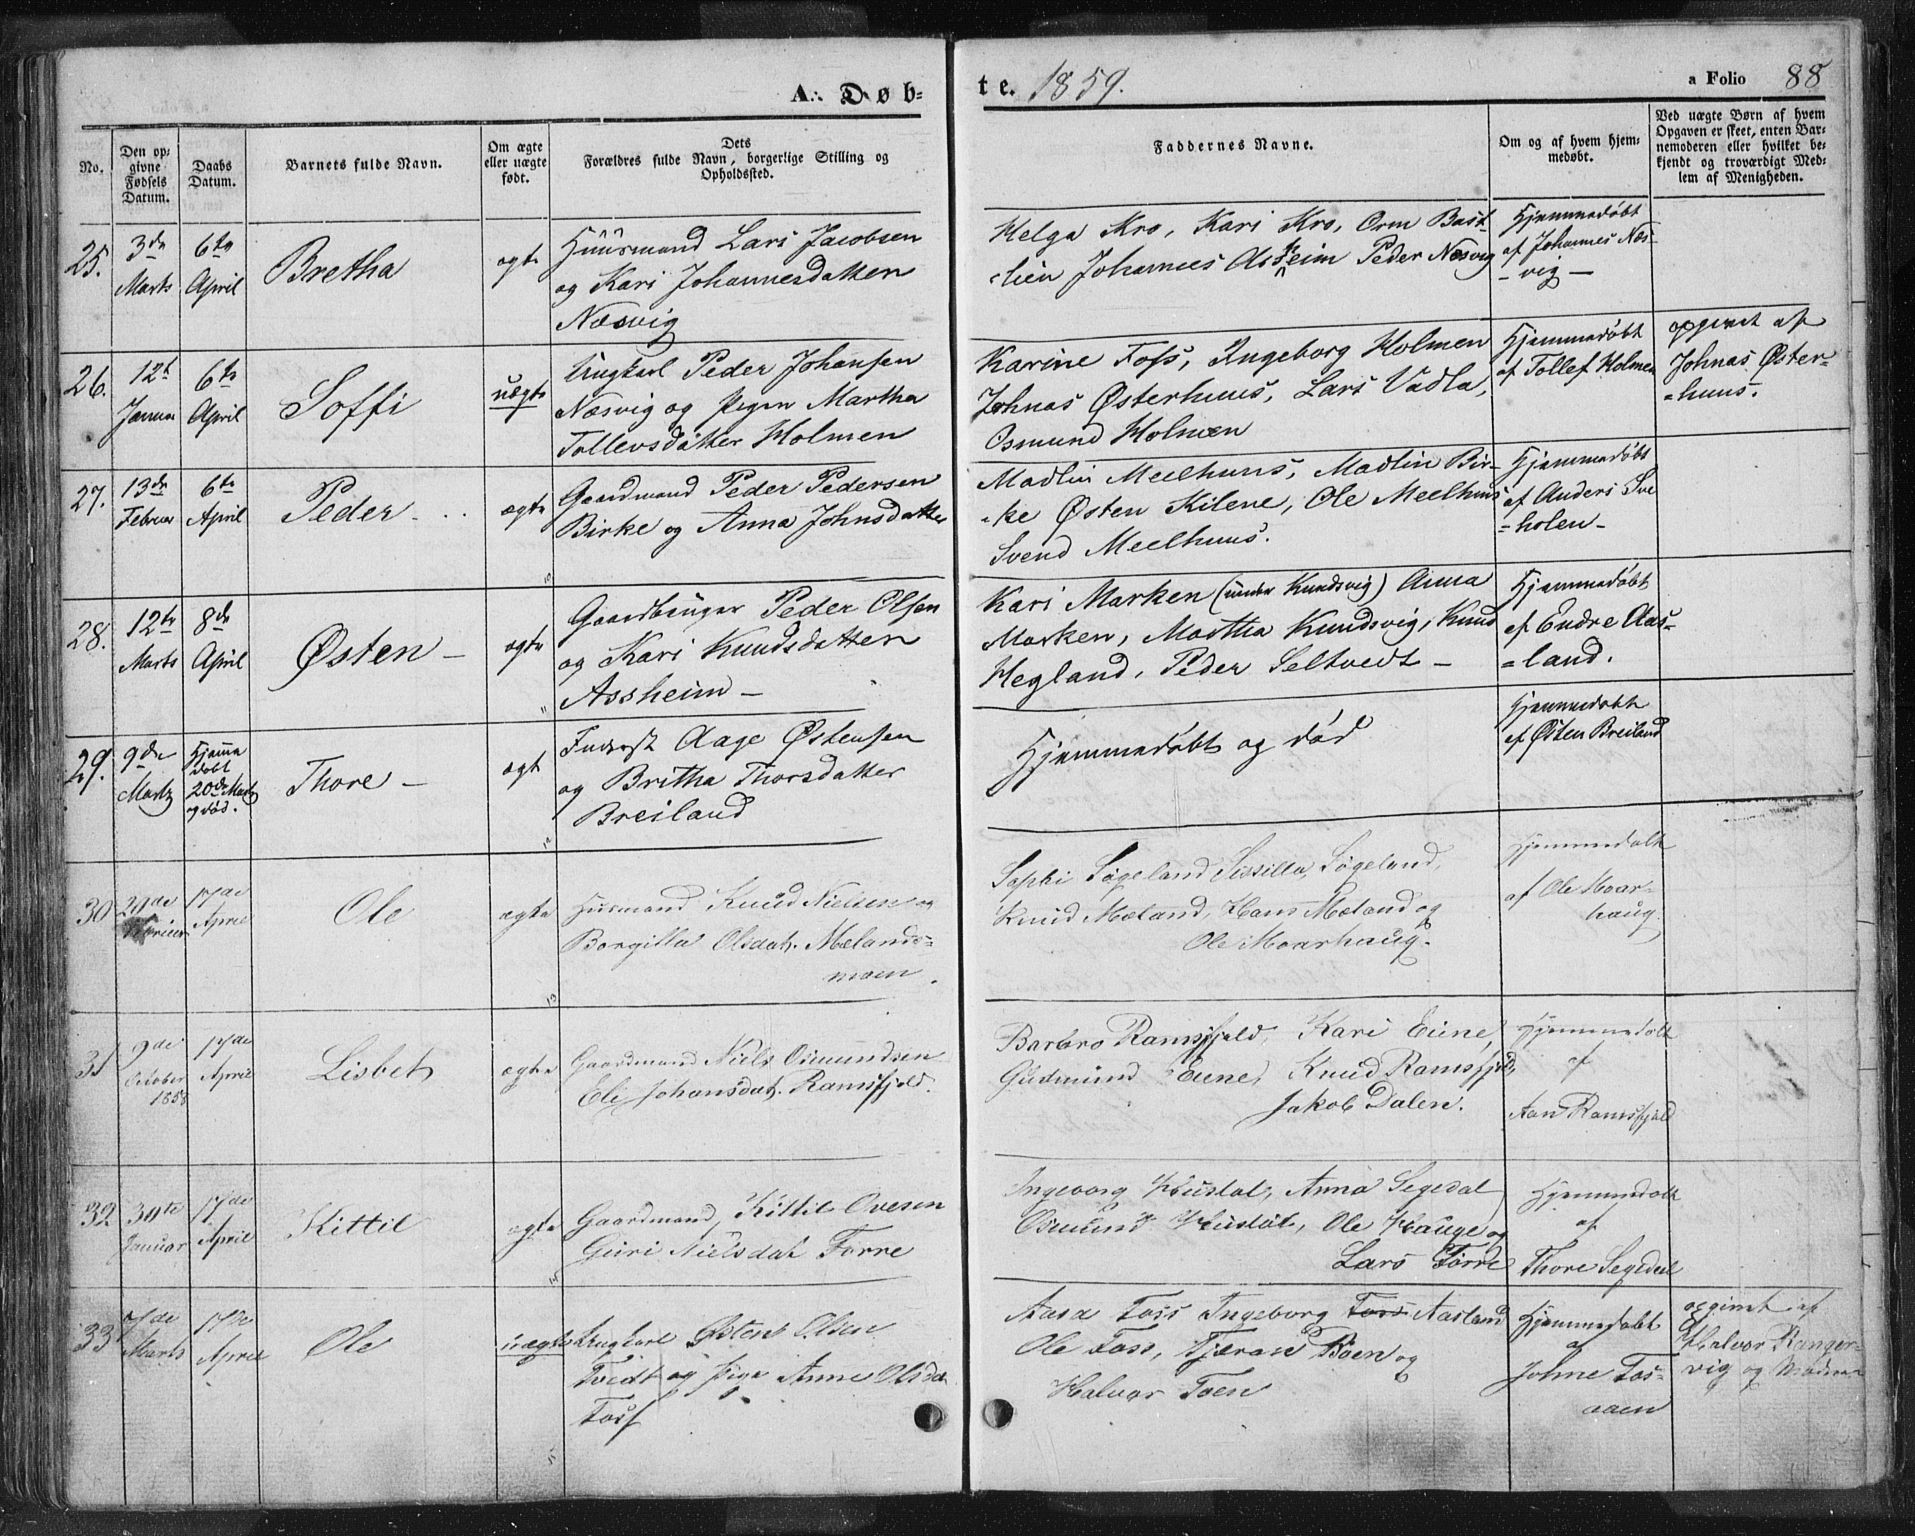 A. Døb-
te. 1859.
a Folio 88
No.
Den op-
givne
Fødsels
Datum.
Daabs
Datum.
Barnets fulde Navn.
Om ægte
eller uægte
født.
Dets
Forældres fulde Navn, borgerlige Stilling og
Opholdssted.
Faddernes Navne.
Om og af hvem hjem-
medøbt.
Ved uægte Børn af hvem
Opgaven er skeet, enten Bar-
nemoderen eller hvilket be-
kjendt og troværdigt Med-
lem af Menigheden.
25.
3de
Marts
6te
April
Bretha
ægte
Huusmand Lars Jacobsen
og Kari Johannesdatter
Næsvig
Helga Kro, Kari Kro, Orm Bast-
-lien Johannes Asheim Peder Næsvig
Hjemmedøbt
af Johannes Næs-
- vig -
26.
12t
Januar
6te
April
Soffi
uægte
Ungkarl Peder Johansen
Næsvig og Pigen Martha
Tollevsdatter Holmen
Karine Foss, Ingeborg Holmen
Johnas Østerhuus, Lars Vadla,
Osmund Holmen
Hjemmedøbt
af Tollef Holmen
opgivet af
Johnas Øster-
=huus.
27.
13de
Februar
6te
April
Peder
ægte
Gaardmand Peder Pedersen
Birke og Anna Johnsdatter
Madlin Meelhuus, Madlin Bir-
-ke Østen Kilene, Ole Meelhuus
Svend Meelhuus.
Hjemmedøbt
af Anders Sve
=holen-
28.
12te
Marts
8de
April
Østen -
ægte
Gaardbruger Peder Olsen
og Kari Knudsdatter
Assheim -
Kari Marken (under Knudsvig) Anna
Marken, Martha Knudsvig, Knud
Hegland, Peder Seltvedt -
Hjemmedøbt
af Endre Aas-
=land.
29.
9de
Marts
Hjemme
døbt
20de Marts
og død.
Thore -
ægt
Inderst Aage Østensen
og Britha Thorsdatter
Breiland
Hjemmedøbt og død
Hjemmedøbt
af Østen Breiland
12
30
Februar
17de
April
Ole
ægte
Husmand Knud Nielsen og
Borgilla Olsdat. Mælands-
moen.
Sophi Søgeland Sissilla Søgeland,
Knud Mæland, Hans Mæland og
Ole Moarhaug.
Hjemmedøbt
af Ole Moar-
haug.
13
31
9de
October
1858
17de
April
Lisbet
ægte
Gaardmand Niels Osmundsen
Eli Johansdat. Ramsfjeld.
Barbro Ramsfjeld, Kari Eiene,
Gudmund Eiene, Knud Ramsfjeld,
Jakob Dalen.
Hjemmedøbt
af
Aan Ramsfjeld
32
30te
Januar
17de
April
Kittil
ægte
Gaardmand Kittil Ovesen
Guri Nielsdat Førre
Ingeborg Hustøl, Anna Segedal
Osmund Hustøl, Ole Hauge og
Lars Førre
Hjemmedøbt
af
Thore Segedal
33
7de
Marts
17de
April
Ole
uægte
Ungkarl Østen Olsen
Tvedt og Pige Anne Olsda
Foss
Aasa Foss Ingeborg Foss Aasland
Ole Foss, Tjæran Bøen og
Halvor Foen
Hjemmedøbt
af
Johne Fos-
aaen
opgivet af
Halvor Ranger-
vig og Moderen